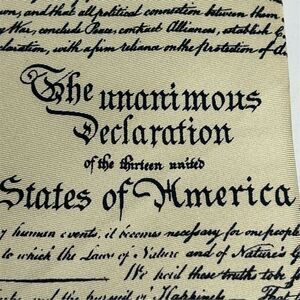 ion, and that all political connection between them
y War, conclude Peace, contract Alliances, establish C
claration, with a firm reliance on the Protection of d
The unanimous
Declaration
of the thirteen united
States of America
f human events, it becomes necessary for one people
to which the Laws of Nature and of Nature's G
We hold these truths to be
and the pursuit of Happiness Tha